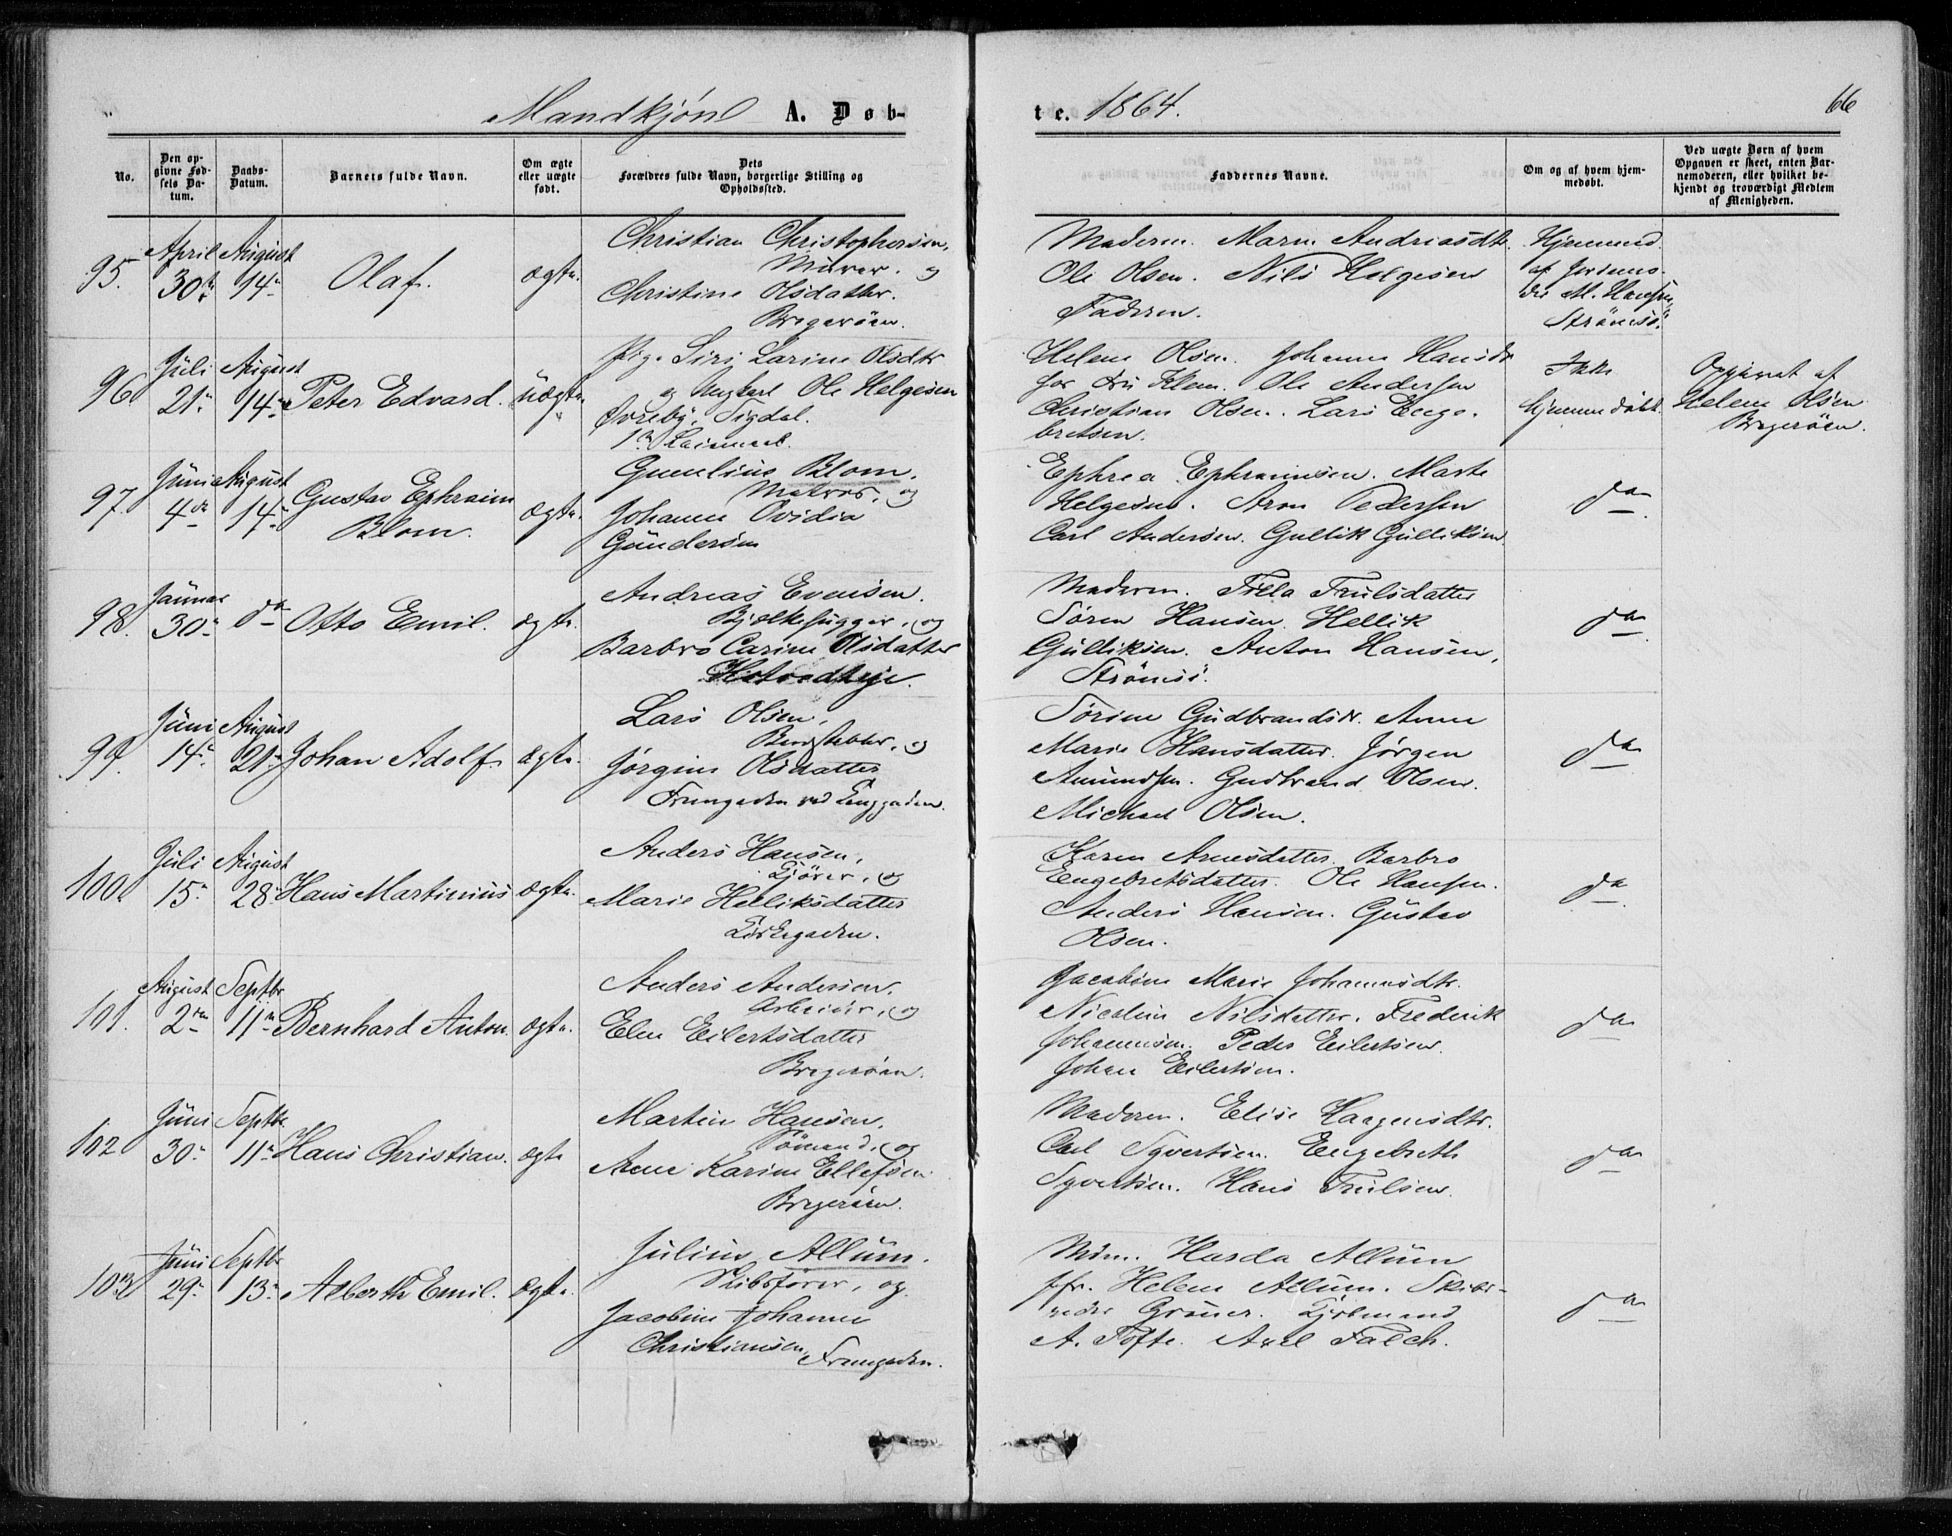 Mandkjøn A. Døb-
No.
Den opgivne Fødsels Datum.
Daabs-Datum.
Barnets fulde Navn.
Om ægte eller uægte født.
Dets Forældres fulde Navn, borgerlige Stilling og Opholdssted.
95. April 30te August 14de Olaf. ægte.
Christian Christophersen,
Murer. og
Christine Olsdatter.
Bragerøen.
96. Juli 21de August 14de Peter Edvard. uægte
Pige Siri Larine Olsdtr
og Ungkarl Ole Helgesen
Øvreby, Sigdal.
1ste Leiermaal.
97. Juni 4de August 14de Gustav Ephraim
Blom. ægte.
Gunelius Blom.
Matros, og
Johanne Ovidia
Gundersen
98. Januar 30te do Otto Emil. ægte.
Andreas Evensen.
Bjelkehugger, og
Barbro Carine Olsdatter
Hotvedteje.
99. Juni 14de August 21de Johan Adolf. ægte.
Lars Olsen,
Bordstabler, og
Jørgine Olsdatter
Trangaden ved Langgaden.
100. Juli 15de August 28de Hans Martinius ægte.
Anders Hansen,
Kjører, og
Marie Helliksdatter
Kirkegaden.
101. August 2den Septbr 11te Bernhard Anton. ægte.
Anders Andersen.
Arbeider, og
Elen Eilertsdatter
Bragerøen.
102 Juni 30te Septbr 11te Hans Christian. ægte
Martin Hansen.
Sømand, og
Anne Karine Ellefsen
Bragerøen.
103 Juni 29de Septbr 13de Alberth Emil. ægte.
Julius Allum.
Skibsfører, og
Jacobine Johanne
Christiansen,
te. 1864. 66
Faddernes Navne.
Om og af hvem hjemmedøbt.
Ved uægte Børn af hvem Opgaven er skeet, enten Barnemoderen, eller hvilket bekjendt og troværdigt Medlem af Menigheden.
Moderen. Maren Andreasdtr.
Ole Olsen. Nils Helgesen
Faderen.
Hjemmed.
af Jordemo-
der M. Hansen
Strømsø.
Helene Olsen. Johanne Hansdtr
for Fru Klem. Ole Andersen
Christian Olsen. Lars Enge-
bretsen.
Ikke
hjemmedøbt.
Opgivet af
Helene Olsen
Bragerøen.
Ephrea Ephraimsen. Marte
Helgesen. Aron Pedersen
Carl Andersen. Gullik Gulliksen.
do
Moderen. Tilla Trulsdatter
Søren Hansen. Hellik
Gulliksen. Anton Hansen,
Strømsø.
do
Sørine Gudbrandsdr. Anne
Marie Hansdatter. Jørgen
Amundsen. Gudbrand Olsen.
Michael Olsen.
do
Karen Arnesdatter. Barbro
Engebretsdatter. Ole Hansen.
Anders Hansen. Gustav
Olsen.
do
Jacobine Marie Johannesdtr.
Nicoline Nilsdatter. Frederik
Johannesen. Peder Eilertsen.
Johan Eilertsen.
do
Moderen. Elise Haagensdtr.
Carl Syvertsen. Engebreth
Syvertsen. Hans Trulsen.
do
Mdm. Hasda Allum
jfr. Helene Allum. Skibs-
reder Grøner. Kjøbmand
A. Tofte. Axel Falch.
do